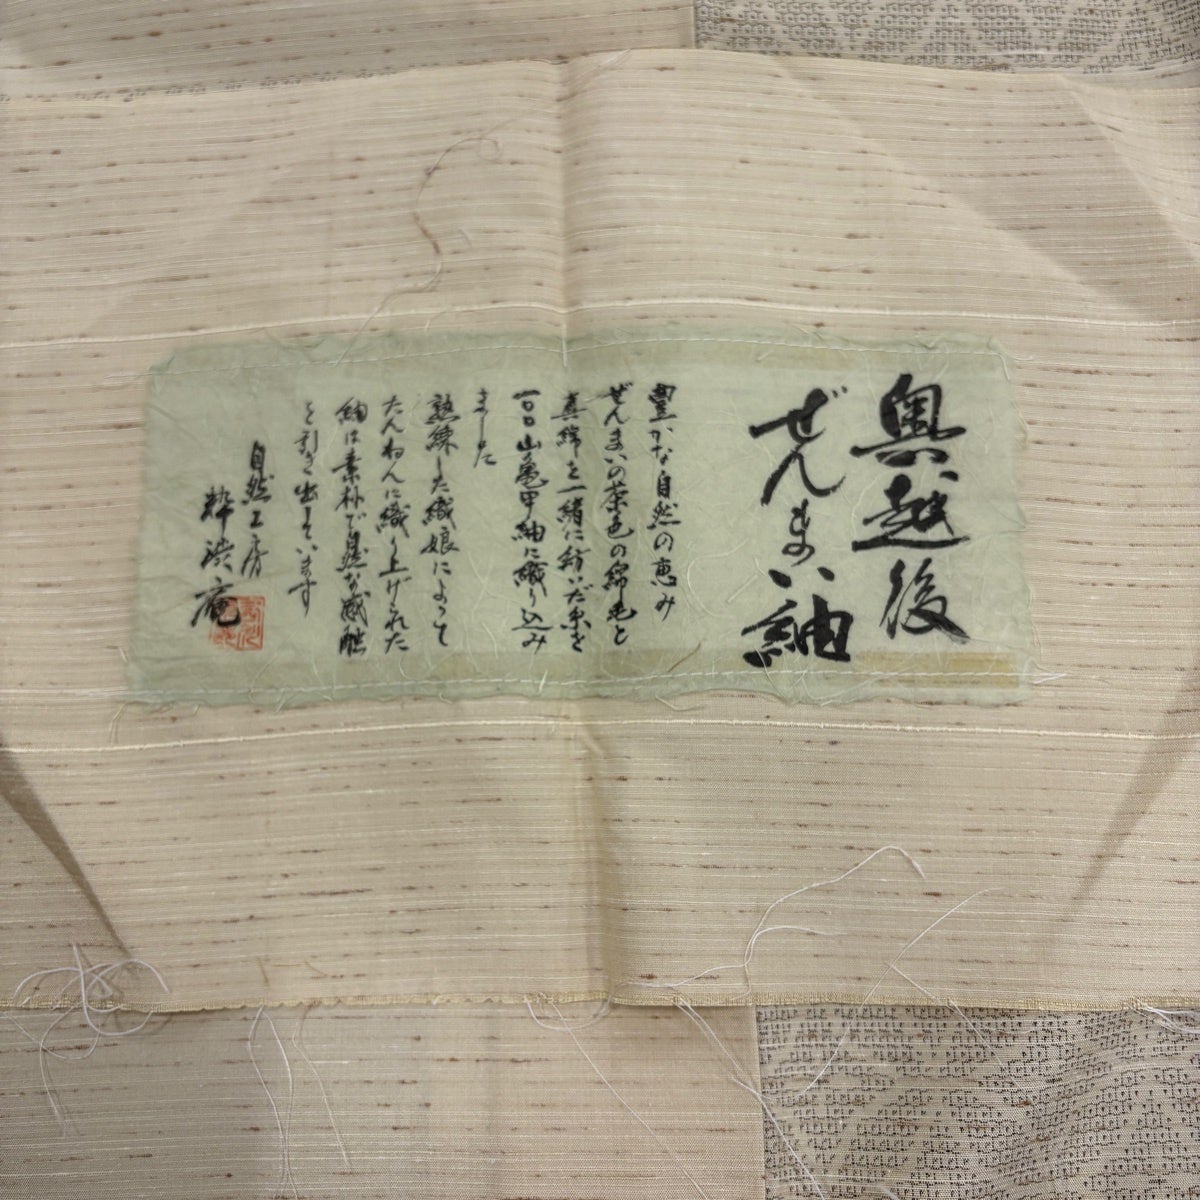 奥越後
ぜんまい紬
豊かな自然の恵み
ぜんまいの茶色の綿毛と
真綿を一緒に紡いだ糸を
一〇〇山亀甲紬に織り込み
ました
熟練した織娘によって
たんねんに織り上げられた
紬は素朴で自然な感触
を引き出しています
自然工房
粋渋庵